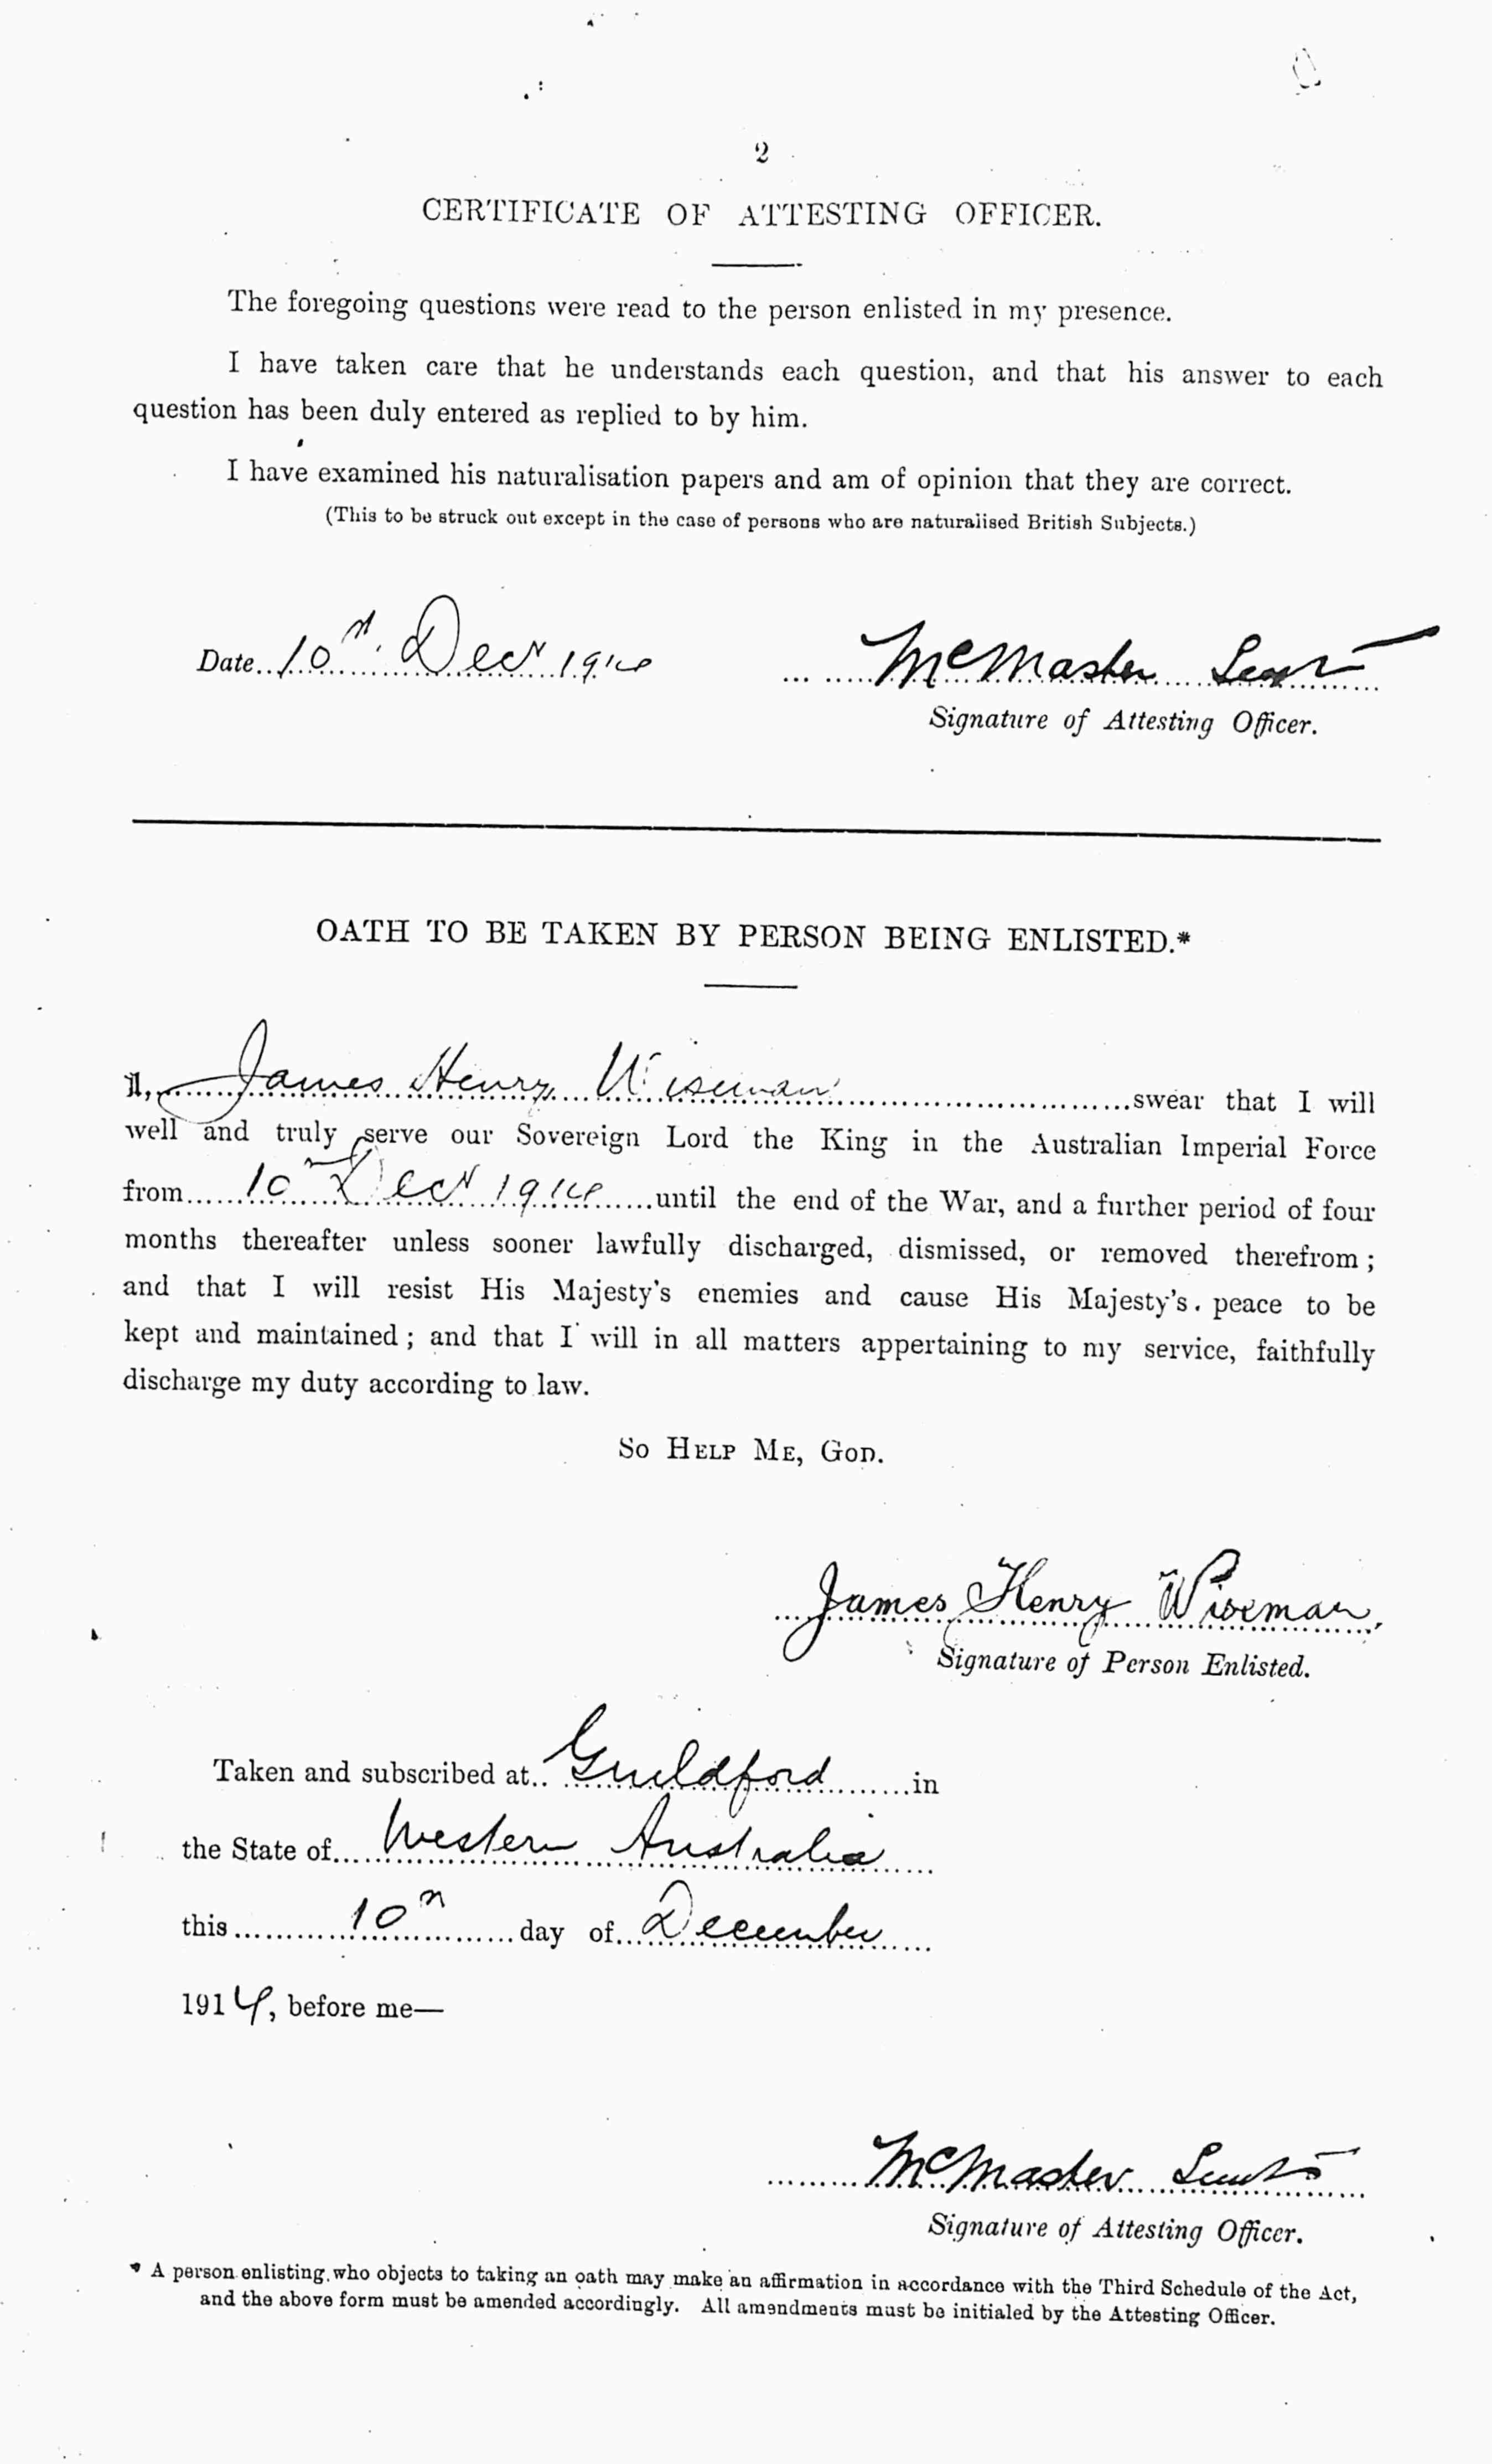 2
CERTIFICATE OF ATTESTING OFFICER.
The foregoing questions were read to the person enlisted in my presence.
I have taken care that he understands each question, and that his answer to each
question has been duly entered as replied to by him.
I have examined his naturalisation papers and am of opinion that they are correct.
(This to be struck out except in the case of persons who are naturalised British Subjects.)
Date 10th Decr 1914 McMaster Lieut
Signature of Attesting Officer.
OATH TO BE TAKEN BY PERSON BEING ENLISTED.*
I, James Henry Wiseman swear that I will
well and truly serve our Sovereign Lord the King in the Australian Imperial Force
from 10th Decr 1914 until the end of the War, and a further period of four
months thereafter unless sooner lawfully discharged, dismissed, or removed therefrom;
and that I will resist His Majesty's enemies and cause His Majesty's peace to be
kept and maintained; and that I will in all matters appertaining to my service, faithfully
discharge my duty according to law.
So Help Me, God.
James Henry Wiseman
Signature of Person Enlisted.
Taken and subscribed at Guildford in
the State of Western Australia
this 10th day of December
1914, before me—
McMaster Lieut
Signature of Attesting Officer.
* A person enlisting who objects to taking an oath may make an affirmation in accordance with the Third Schedule of the Act,
and the above form must be amended accordingly. All amendments must be initialed by the Attesting Officer.